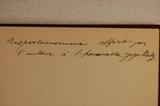 Respectueusement offert par
l'auteur à l'honorable juge